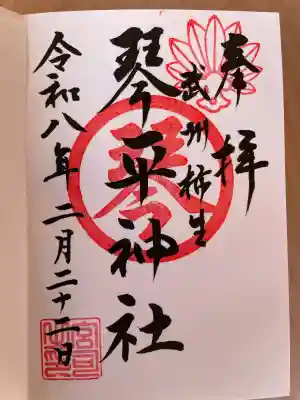 奉拝
武州柿生
琴平神社
琴
令和八年二月二十二日